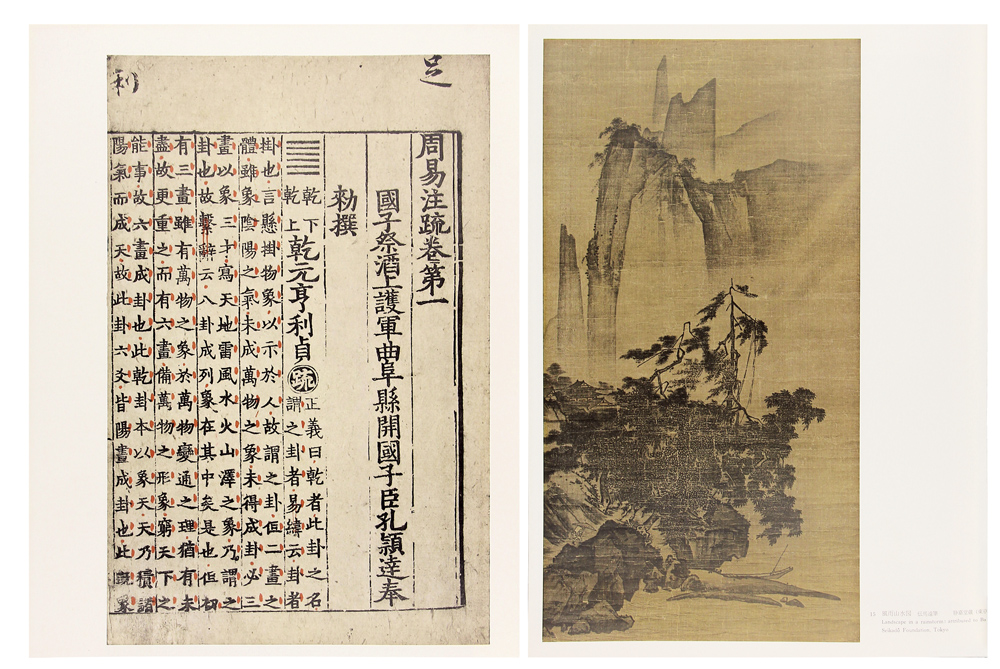 足
利
周易注疏卷第一
國子祭酒上護軍曲阜縣開國子臣孔穎達奉
勑撰
乾下
乾上
乾元亨利貞
疏
正義曰乾者此卦之名
謂之卦者易緯云卦者
掛也言懸掛物象以示於人故謂之卦但二畫之
體雖象陰陽之氣未成萬物之象未得成卦必三
畫以象三才寫天地雷風水火山澤之象乃謂之
卦也故繫辭云八卦成列象在其中矣是也但初
有三畫雖有萬物之象於萬物變通之理猶有未
盡故更重之而有六畫備萬物之形象窮天下之
能事故六畫成卦也此乾卦本以象天天乃積諸
陽氣而成天故此卦六爻皆陽畫成卦也此既象
風雨山水図
Landscape in a rainstorm; attributed to Ma
Seikadō Foundation, Tokyo